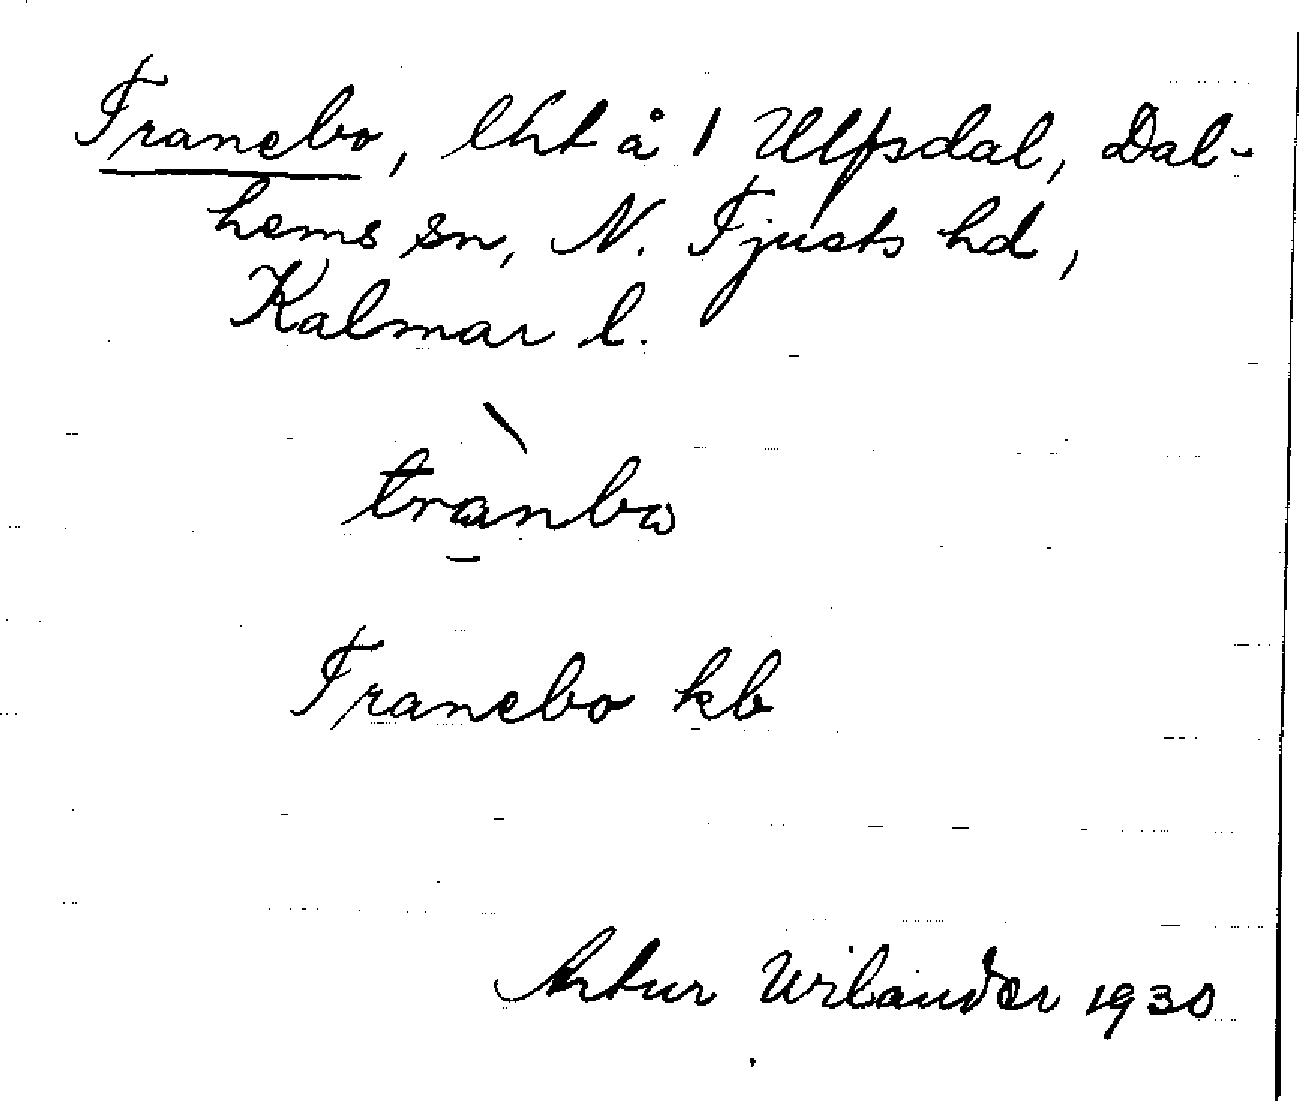 Tranebo, lht å 1 Ulfsdal, Dal-
hems sn, N. Tjusts hd,
Kalmar l.
trànbω
Tranebo kb
Artur Wilander 1930